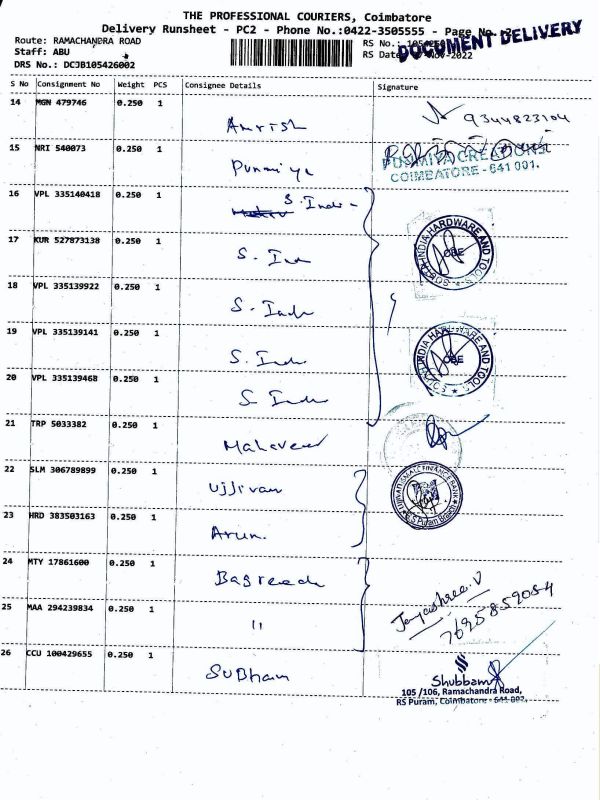 THE PROFESSIONAL COURIERS, Coimbatore
Delivery Runsheet - PC2 - Phone No.:0422-3505555 - Page No.
DOCUMENT DELIVERY
Route: RAMACHANDRA ROAD
RS No.:
Staff: ABU
RS Date: Nov-2022
DRS No.: DCJB105426002
S No Consignment No Weight PCS Consignee Details Signature
14 MGN 479746 0.250 1 Amrish 9344823104
15 NRI 540073 0.250 1 Punmiya
PUNMIYA CREATIONS
COIMBATORE - 641 001.
16 VPL 335140418 0.250 1 S. India
17 KUR 527873138 0.250 1 S. Ind
SOUTH INDIA HARDWARE AND TOOLS
CBE
18 VPL 335139922 0.250 1 S. India
19 VPL 335139141 0.250 1 S. India
INDIA HARDWARE AND TOOLS
CBE
20 VPL 335139468 0.250 1 S India
21 TRP 5033382 0.250 1 Mahaveer
22 SLM 306789899 0.250 1 Ujjivan
UJJIVAN SMALL FINANCE BANK
R.S Puram Branch
23 HRD 383503163 0.250 1 Arun.
24 MTY 17861600 0.250 1 Bagreecha
Jayashree.V
7695859084
25 MAA 294239834 0.250 1 "
26 CCU 100429655 0.250 1 Subham
Shubbam
105 /106, Ramachandra Road,
RS Puram, Coimbatore - 641 002.